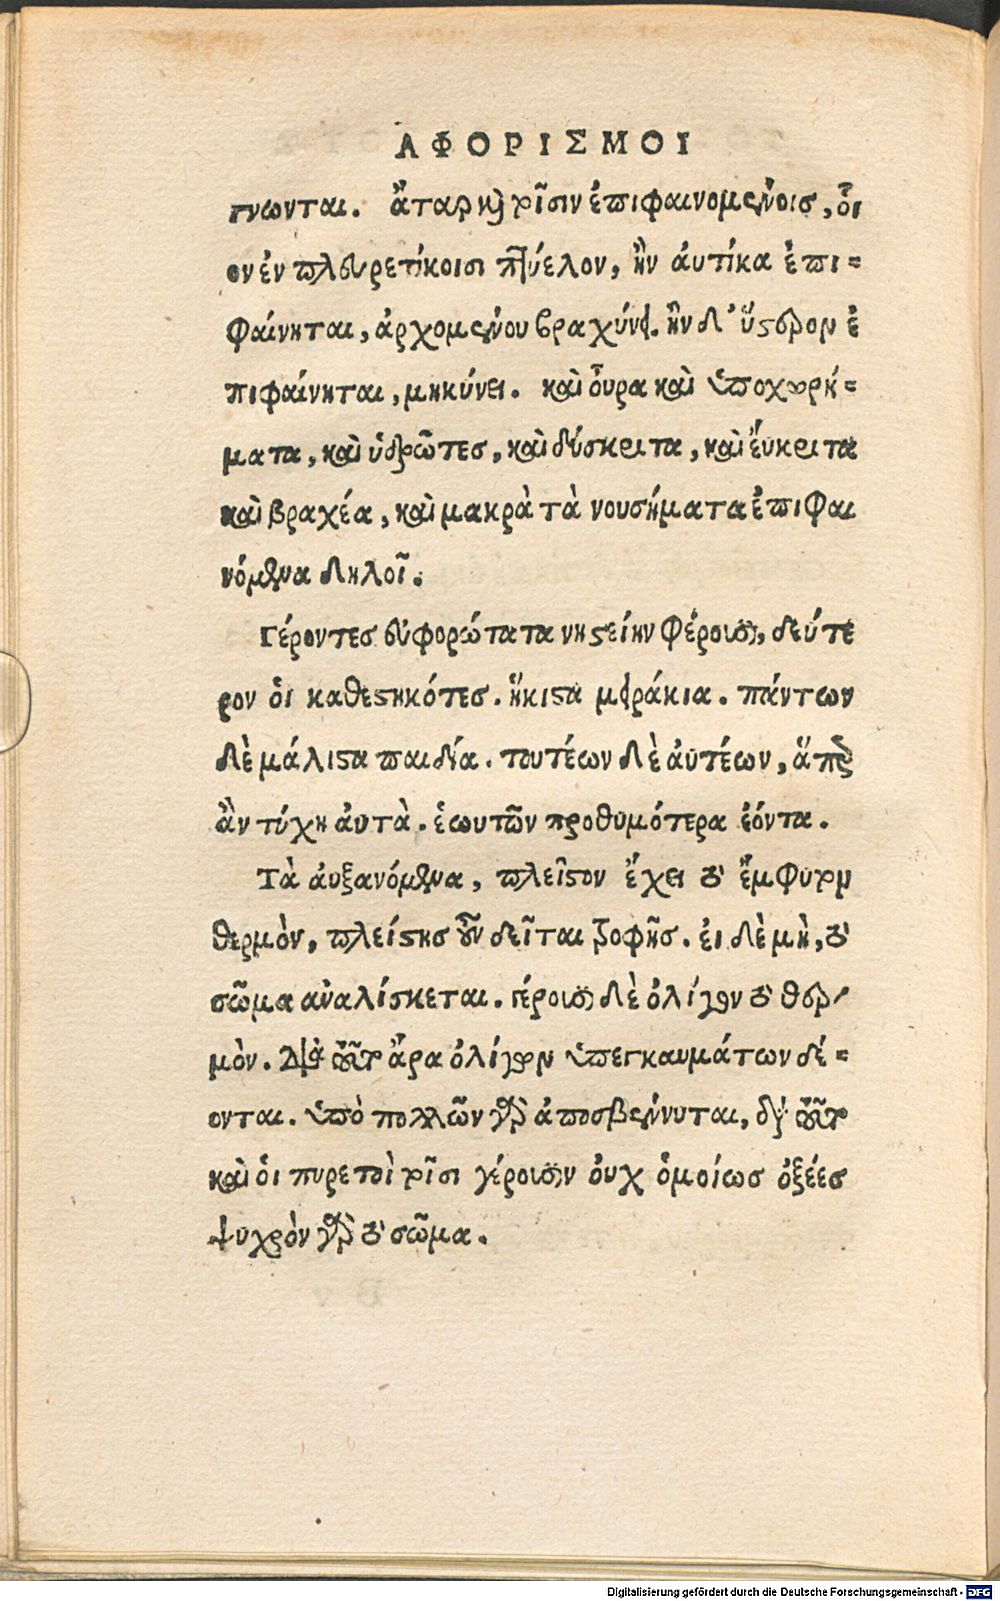 ΑΦΟΡΙΣΜΟΙ
γνωνται. ἄταρ καὶ τοῖσιν ἐπιφαινομένοις, οἷ
ον ἐν πλευρετικοισι πτύελον, ἢν ἀυτίκα ἐπι=
φαίνηται, ἀρχομένου βραχύνει. ἢν δ' ὕστερον ἐ
πιφαίνηται, μηκύνει. καὶ ὀυρα καὶ ὑποχωρή=
ματα, καὶ ἱδρῶτες, καὶ δύσκριτα, καὶ ἔυκριτα
καὶ βραχέα, καὶ μακρὰ τὰ νουσήματα ἐπιφαι
νόμενα δηλοῖ.
Γέροντες ἐυφορώτατα νηστείην φέρουσι, δεύτε
ρον ὁι καθεστηκότες. ἥκιστα μειράκια. πάντων
δὲ μάλιστα παιδία. τουτέων δὲ ἀυτέων, ἅπερ
ἂν τύχη ἀυτὰ. ἑωυτῶν προθυμότερα ἐόντα.
Τὰ ἀυξανόμενα, πλεῖστον ἔχει τὸ ἔμφυτον
θερμὸν, πλείστης οὖν δεῖται τροφῆς. ἐι δὲ μὴ, τὸ
σῶμα ἀναλίσκεται. γέρουσι δὲ ὀλίγον τὸ θερ
μὸν. Διὰ τοῦτο ἄρα ὀλίγων ὑπεκκαυμάτων δέ=
ονται. ὑπὸ πολλῶν γὰρ ἀποσβέννυται, διὰ τοῦτο
καὶ ὁι πυρετοὶ τοῖσι γέρουσιν ὀυχ ὁμοίως ὀξέες
ψυχρὸν γὰρ τὸ σῶμα.
Digitalisierung gefördert durch die Deutsche Forschungsgemeinschaft - DFG